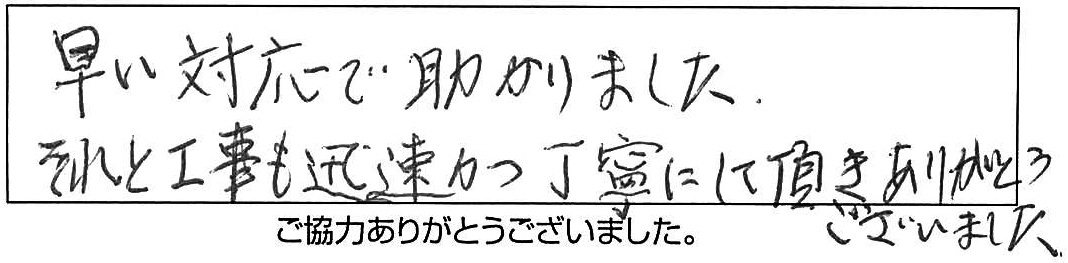 早い対応で助かりました.
それと工事も迅速かつ丁寧にして頂きありがとう
ございました
ご協力ありがとうございました。